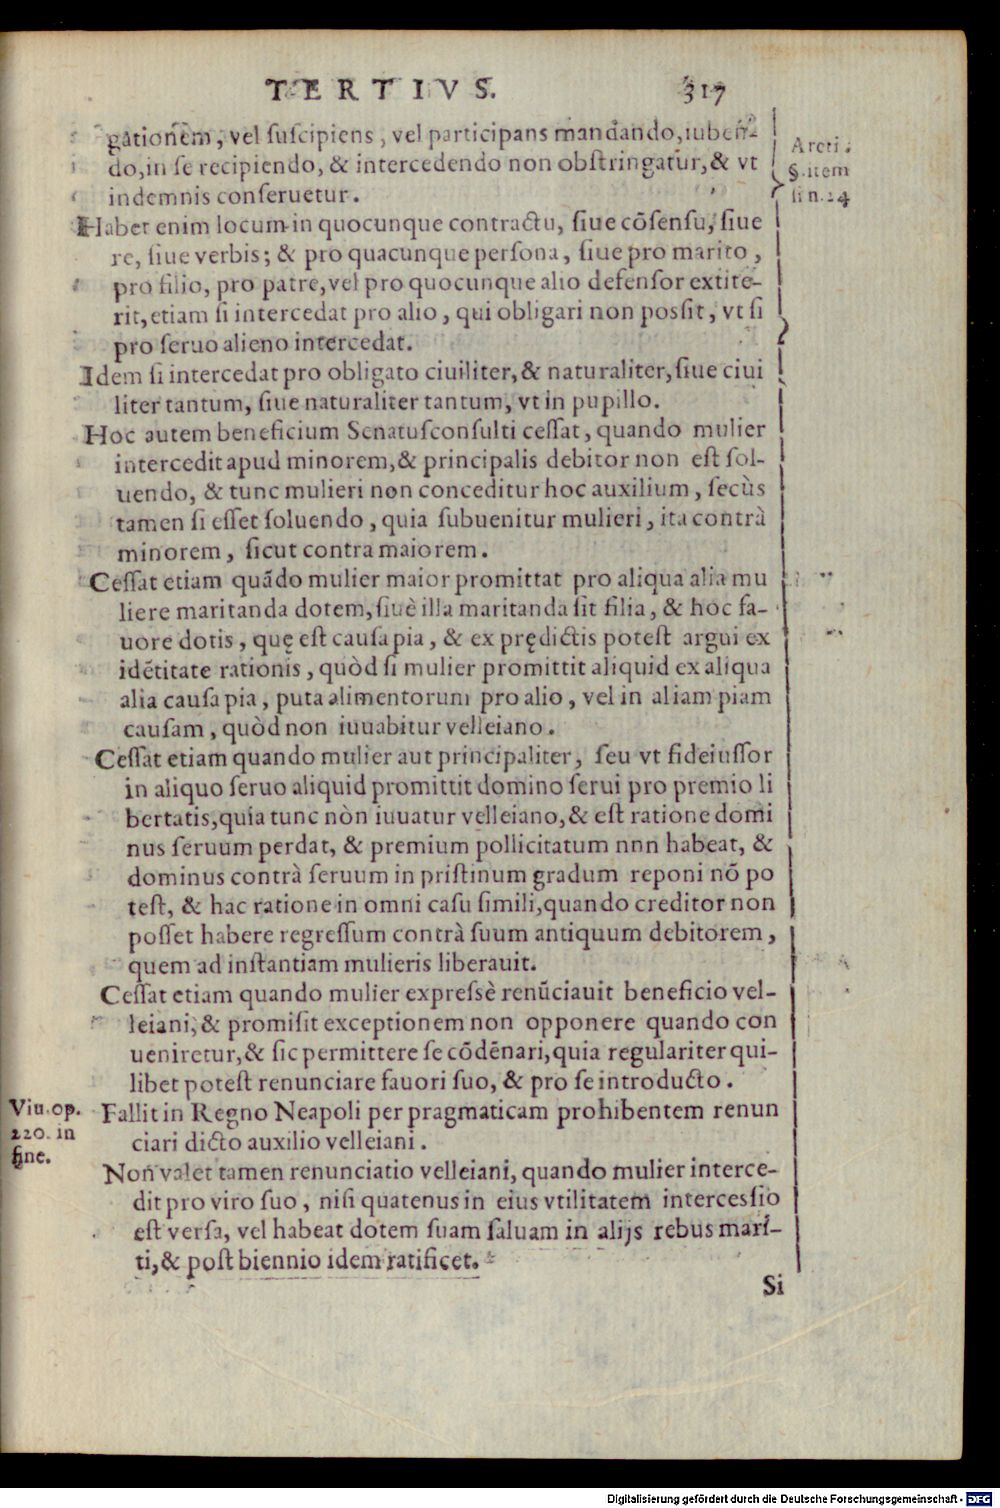 TERTIVS. 317
gationem, vel suscipiens, vel participans mandando, iuben-
do, in se recipiendo, & intercedendo non obstringatur, & vt
indemnis conseruetur.
Areti.
§. item
fin. 24
Habet enim locum in quocunque contractu, siue cōsensu, siue
re, siue verbis; & pro quacunque persona, siue pro marito,
pro filio, pro patre, vel pro quocunque alio defensor extite-
rit, etiam si intercedat pro alio, qui obligari non possit, vt si
pro seruo alieno intercedat.
Idem si intercedat pro obligato ciuiliter, & naturaliter, siue ciui
liter tantum, siue naturaliter tantum, vt in pupillo.
Hoc autem beneficium Senatusconsulti cessat, quando mulier
intercedit apud minorem, & principalis debitor non est sol-
uendo, & tunc mulieri non conceditur hoc auxilium, secùs
tamen si esset soluendo, quia subuenitur mulieri, ita contrà
minorem, sicut contra maiorem.
Cessat etiam quādo mulier maior promittat pro aliqua alia mu
liere maritanda dotem, siuè illa maritanda sit filia, & hoc fa-
uore dotis, quę est causa pia, & ex prędictis potest argui ex
idētitate rationis, quòd si mulier promittit aliquid ex aliqua
alia causa pia, puta alimentorum pro alio, vel in aliam piam
causam, quòd non iuuabitur velleiano.
Cessat etiam quando mulier aut principaliter, seu vt fideiussor
in aliquo seruo aliquid promittit domino serui pro premio li
bertatis, quia tunc nòn iuuatur velleiano, & est ratione domi
nus seruum perdat, & premium pollicitatum nnn habeat, &
dominus contrà seruum in pristinum gradum reponi nō po
test, & hac ratione in omni casu simili, quando creditor non
posset habere regressum contrà suum antiquum debitorem,
quem ad instantiam mulieris liberauit.
Cessat etiam quando mulier expressè renūciauit beneficio vel-
leiani, & promisit exceptionem non opponere quando con
ueniretur, & sic permittere se cōdēnari, quia regulariter qui-
libet potest renunciare fauori suo, & pro se introducto.
Viu. op.
220. in
fine.
Fallit in Regno Neapoli per pragmaticam prohibentem renun
ciari dicto auxilio velleiani.
Non valet tamen renunciatio velleiani, quando mulier interce-
dit pro viro suo, nisi quatenus in eius vtilitatem intercessio
est versa, vel habeat dotem suam saluam in alijs rebus mari-
ti, & post biennio idem ratificet.
Si
Digitalisierung gefördert durch die Deutsche Forschungsgemeinschaft - DFG